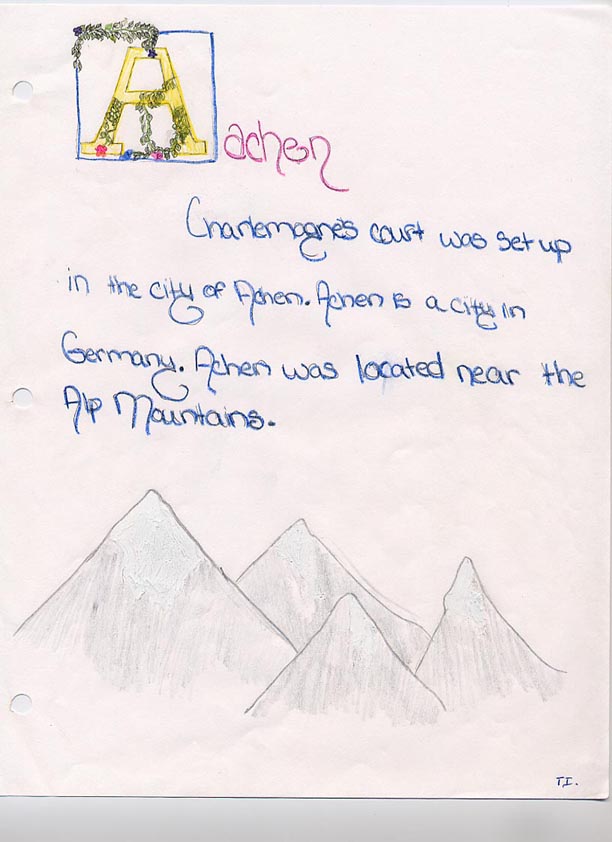 Aachen
Charlemagne's court was set up
in the city of Achen. Achen is a city in
Germany. Achen was located near the
Alp Mountains.
T.I.